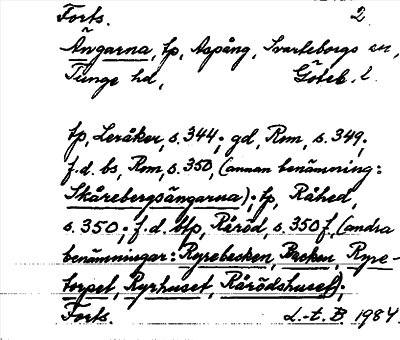 Forts. 2
Ängarna, tp, Aspång, Svarteborgs sn,
Tunge hd, Göteb. l.
tp, Leråker, s. 344; gd, Rom, s. 349;
f.d. bs, Rom, s. 350, (annan benämning:
Skårebergsängarna); tp, Råhed,
s. 350; f.d. btp, Råröd, s. 350 f, (andra
benämningar: Ryrebecken, Backen, Ryre-
torpet, Ryrhuset, Rårödshuset);
Forts. L.-t. B. 1984.